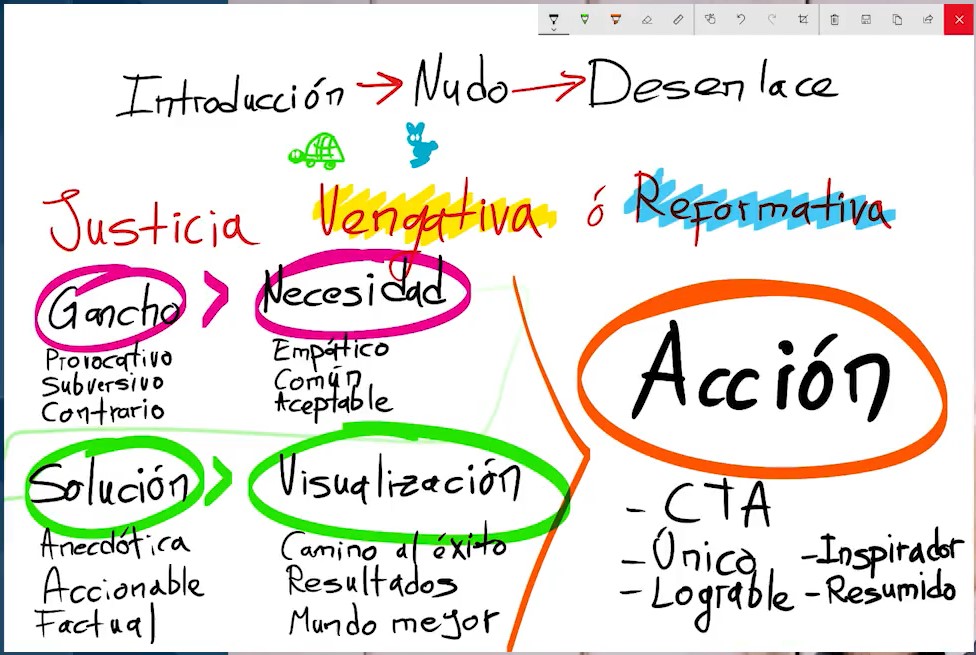 Introducción → Nudo → Desenlace
Justicia Vengativa ó Reformativa
Gancho > Necesidad
Provocativo
Subversivo
Contrario
Empático
Común
Aceptable
Solución > Visualización
Anecdótica
Accionable
Factual
Camino al éxito
Resultados
Mundo mejor
Acción
- CTA
- Único
- Lograble
- Inspirador
- Resumido